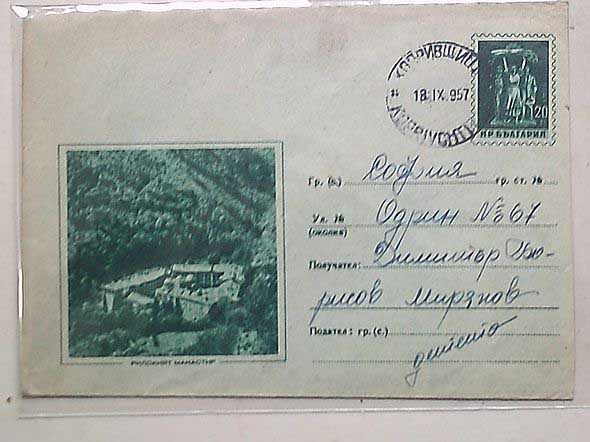 КОПРИВЩИЦА
18.IX.957
KOPRIVCHTI
1.20
НР БЪЛГАРИЯ
Гр. (в.) София гр. ст. №
Ул. № Одрин № 67
(околия)
Получател: Димитър Бо-
рисов Мирянов
Подател: гр. (с.) детето
РИЛСКИЯТ МАНАСТИР